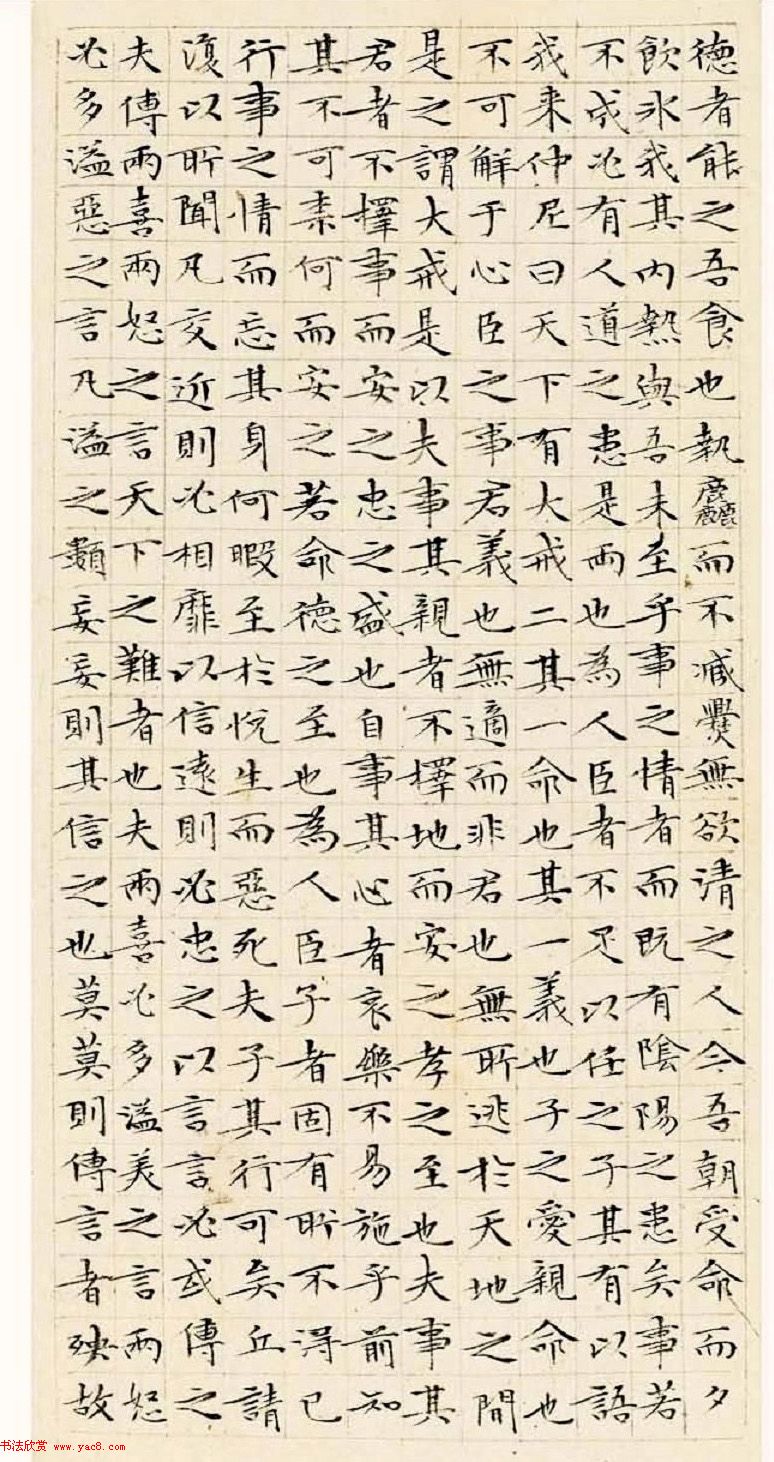 德者能之吾食也執麤而不臧爨無欲清之人今吾朝受命而夕
飲冰我其内熱與吾未至乎事之情者而既有陰陽之患矣事若
不成必有人道之患是兩也為人臣者不足以任之子其有以語
我来仲尼曰天下有大戒二其一命也其一義也子之愛親命也
不可解于心臣之事君義也無適而非君也無所逃於天地之間
是之謂大戒是以夫事其親者不擇地而安之孝之至也夫事其
君者不擇事而安之忠之盛也自事其心者哀樂不易施乎前知
其不可柰何而安之若命德之至也為人臣子者固有所不得已
行事之情而忘其身何暇至於悦生而惡死夫子其行可矣丘請
復以所聞凡交近則必相靡以信遠則必忠之以言言必或傳之
夫傳兩喜兩怒之言天下之難者也夫兩喜必多溢美之言兩怒
必多溢惡之言凡溢之類妄妄則其信之也莫莫則傳言者殃故
书法欣赏 www.yac8.com